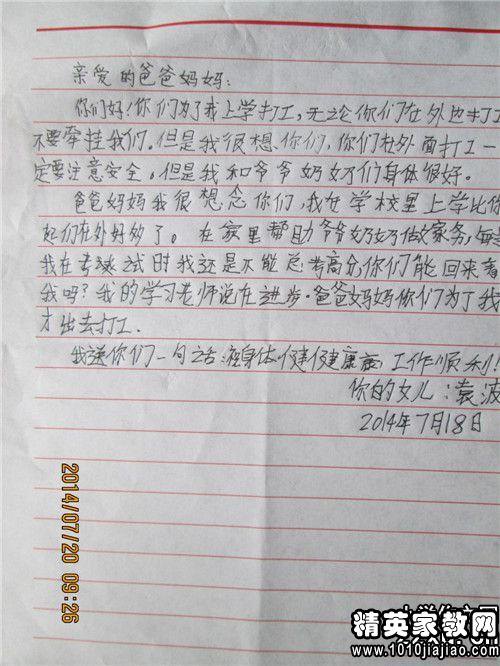 亲爱的爸爸妈妈：
你们好！你们为了我上学打工，无论你们在外边打工
不要牵挂我们。但是我很想你们，你们在外面打工一
定要注意安全。但是我和爷爷奶奶们身体很好。
爸爸妈妈我很想念你们，我在学校里上学比你
们在外好多了。在家里帮助爷爷奶奶做家务，每
我在考试时我还是不能考高分，你们能回来看
我吗？我的学习老师说在进步。爸爸妈妈你们为了我
才出去打工.
我送你们一句话：身体健康，工作顺利！
你的女儿：袁波
2014年7月18日
2014/07/20 09:26
精英家教网
www.1010jiajiao.com